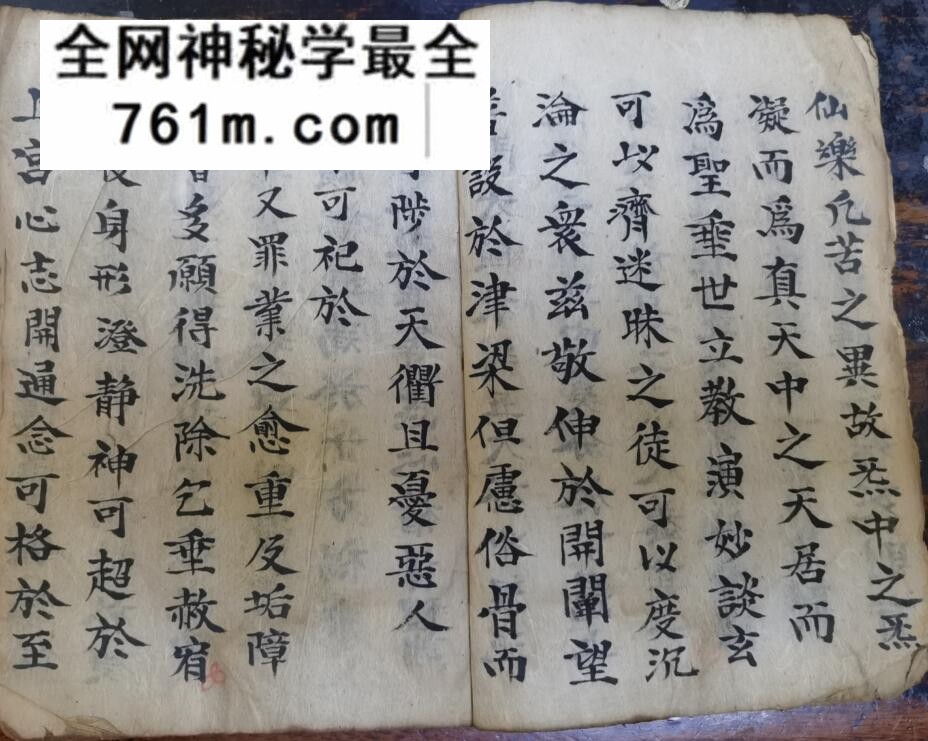 全网神秘学最全
761m.com
仙樂凢苦之異故炁中之炁
凝而爲真天中之天居而
爲聖垂世立教演妙談玄
可以濟迷昧之徒可以度沉
淪之衆兹敬伸於開闡望
設於津梁但慮俗骨而
陟於天衢且憂惡人
可祀於
又罪業之愈重及垢障
多願得洗除乞垂赦宥
身形澄静神可超於
宫心志開通念可格於至